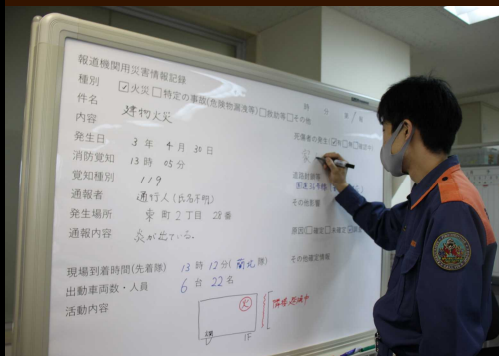 報道機関用災害情報記録
種別 ☑火災 □特定の事故(危険物漏洩等) □救助等 □その他
件名 建物火災
内容
発生日 3年 4月 30日
消防覚知 13時 05分
覚知種別 119
通報者 通行人(氏名不明)
発生場所 東町2丁目 28番
通報内容 炎が出ている。
現場到着時間(先着隊) 13時 12分( 隊)
出動車両数・人員 6台 22名
活動内容
火
1F
時 分
死傷者の発生
その他影響
原因 □確定
その他確定情報